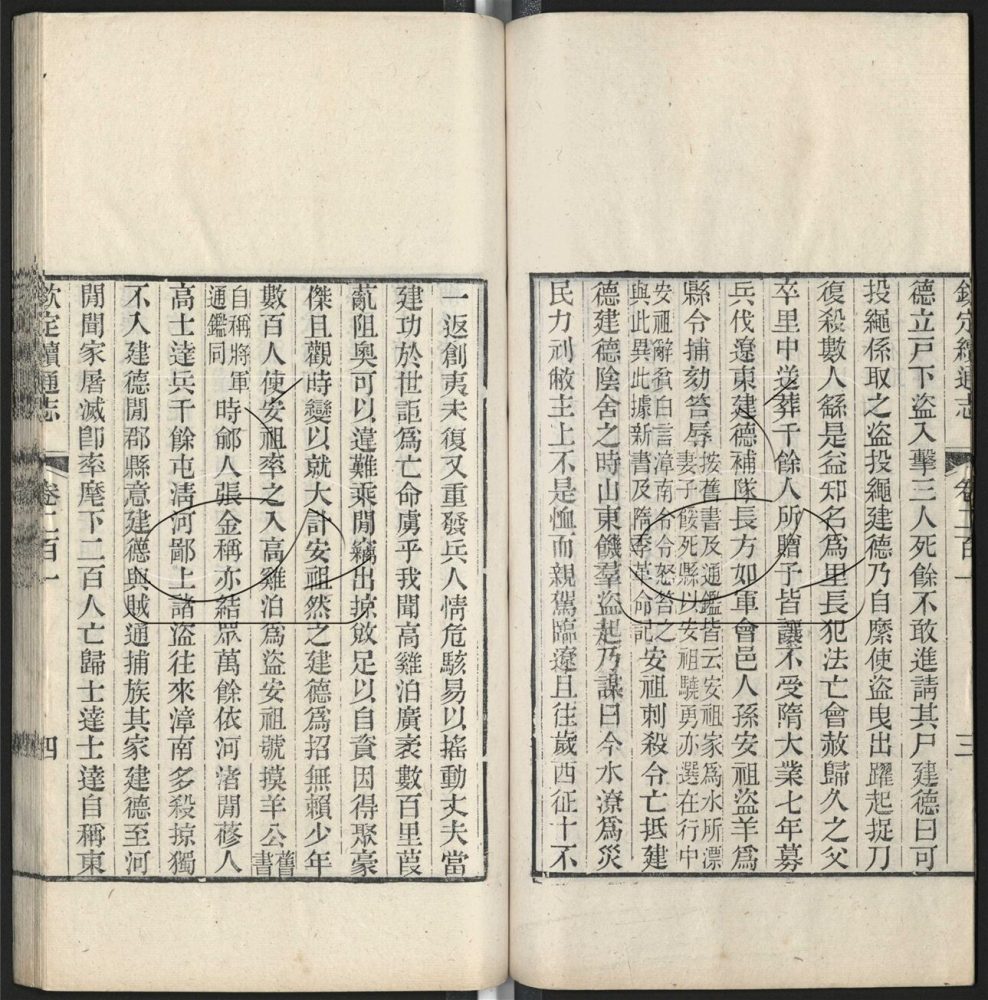 欽定續通志 卷二百一 三
德立戸下盜入擊三人死餘不敢進請其尸建德曰可
投繩係取之盜投繩建德乃自縻使盜曳出躍起捉刀
復殺數人繇是益知名爲里長犯法亡會赦歸久之父
卒里中送葬千餘人所贈予皆讓不受隋大業七年募
兵伐遼東建德補隊長方如軍會邑人孫安祖盜羊爲
縣令捕劾笞辱按舊書及通鑑皆云安祖家爲水所漂
妻子餒死縣以安祖驍勇亦選在行中
安祖辭貧白言漳南令令怒笞之
與此異此據新書及隋季革命記安祖刺殺令亡抵建
德建德陰舍之時山東饑羣盜起乃謀曰今水潦爲災
民力刓敝主上不是恤而親駕臨遼且往歲西征十不
一返創夷未復又重發兵人情危駭易以搖動丈夫當
建功於世詎爲亡命虜乎我聞高雞泊廣袤數百里葭
薍阻奥可以違難乘閒竊出掠斂足以自資因得聚豪
傑且觀時變以就大計安祖然之建德爲招無賴少年
數百人使安祖率之入高雞泊爲盜安祖號摸羊公舊書
自稱將軍
通鑑同時鄃人張金稱亦結眾萬餘依河渚閒蓚人
高士逹兵千餘屯淸河鄙上諸盜往來漳南多殺掠獨
不入建德閒郡縣意建德與賊通捕族其家建德至河
閒聞家屠滅卽率麾下二百人亡歸士逹士逹自稱東
欽定續通志 卷二百一 四